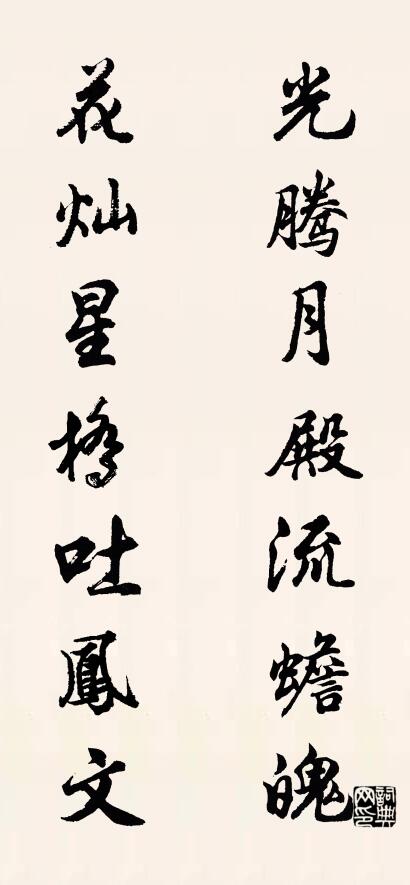 光腾月殿流蟾魄
花灿星桥吐鳳文
詞典网印